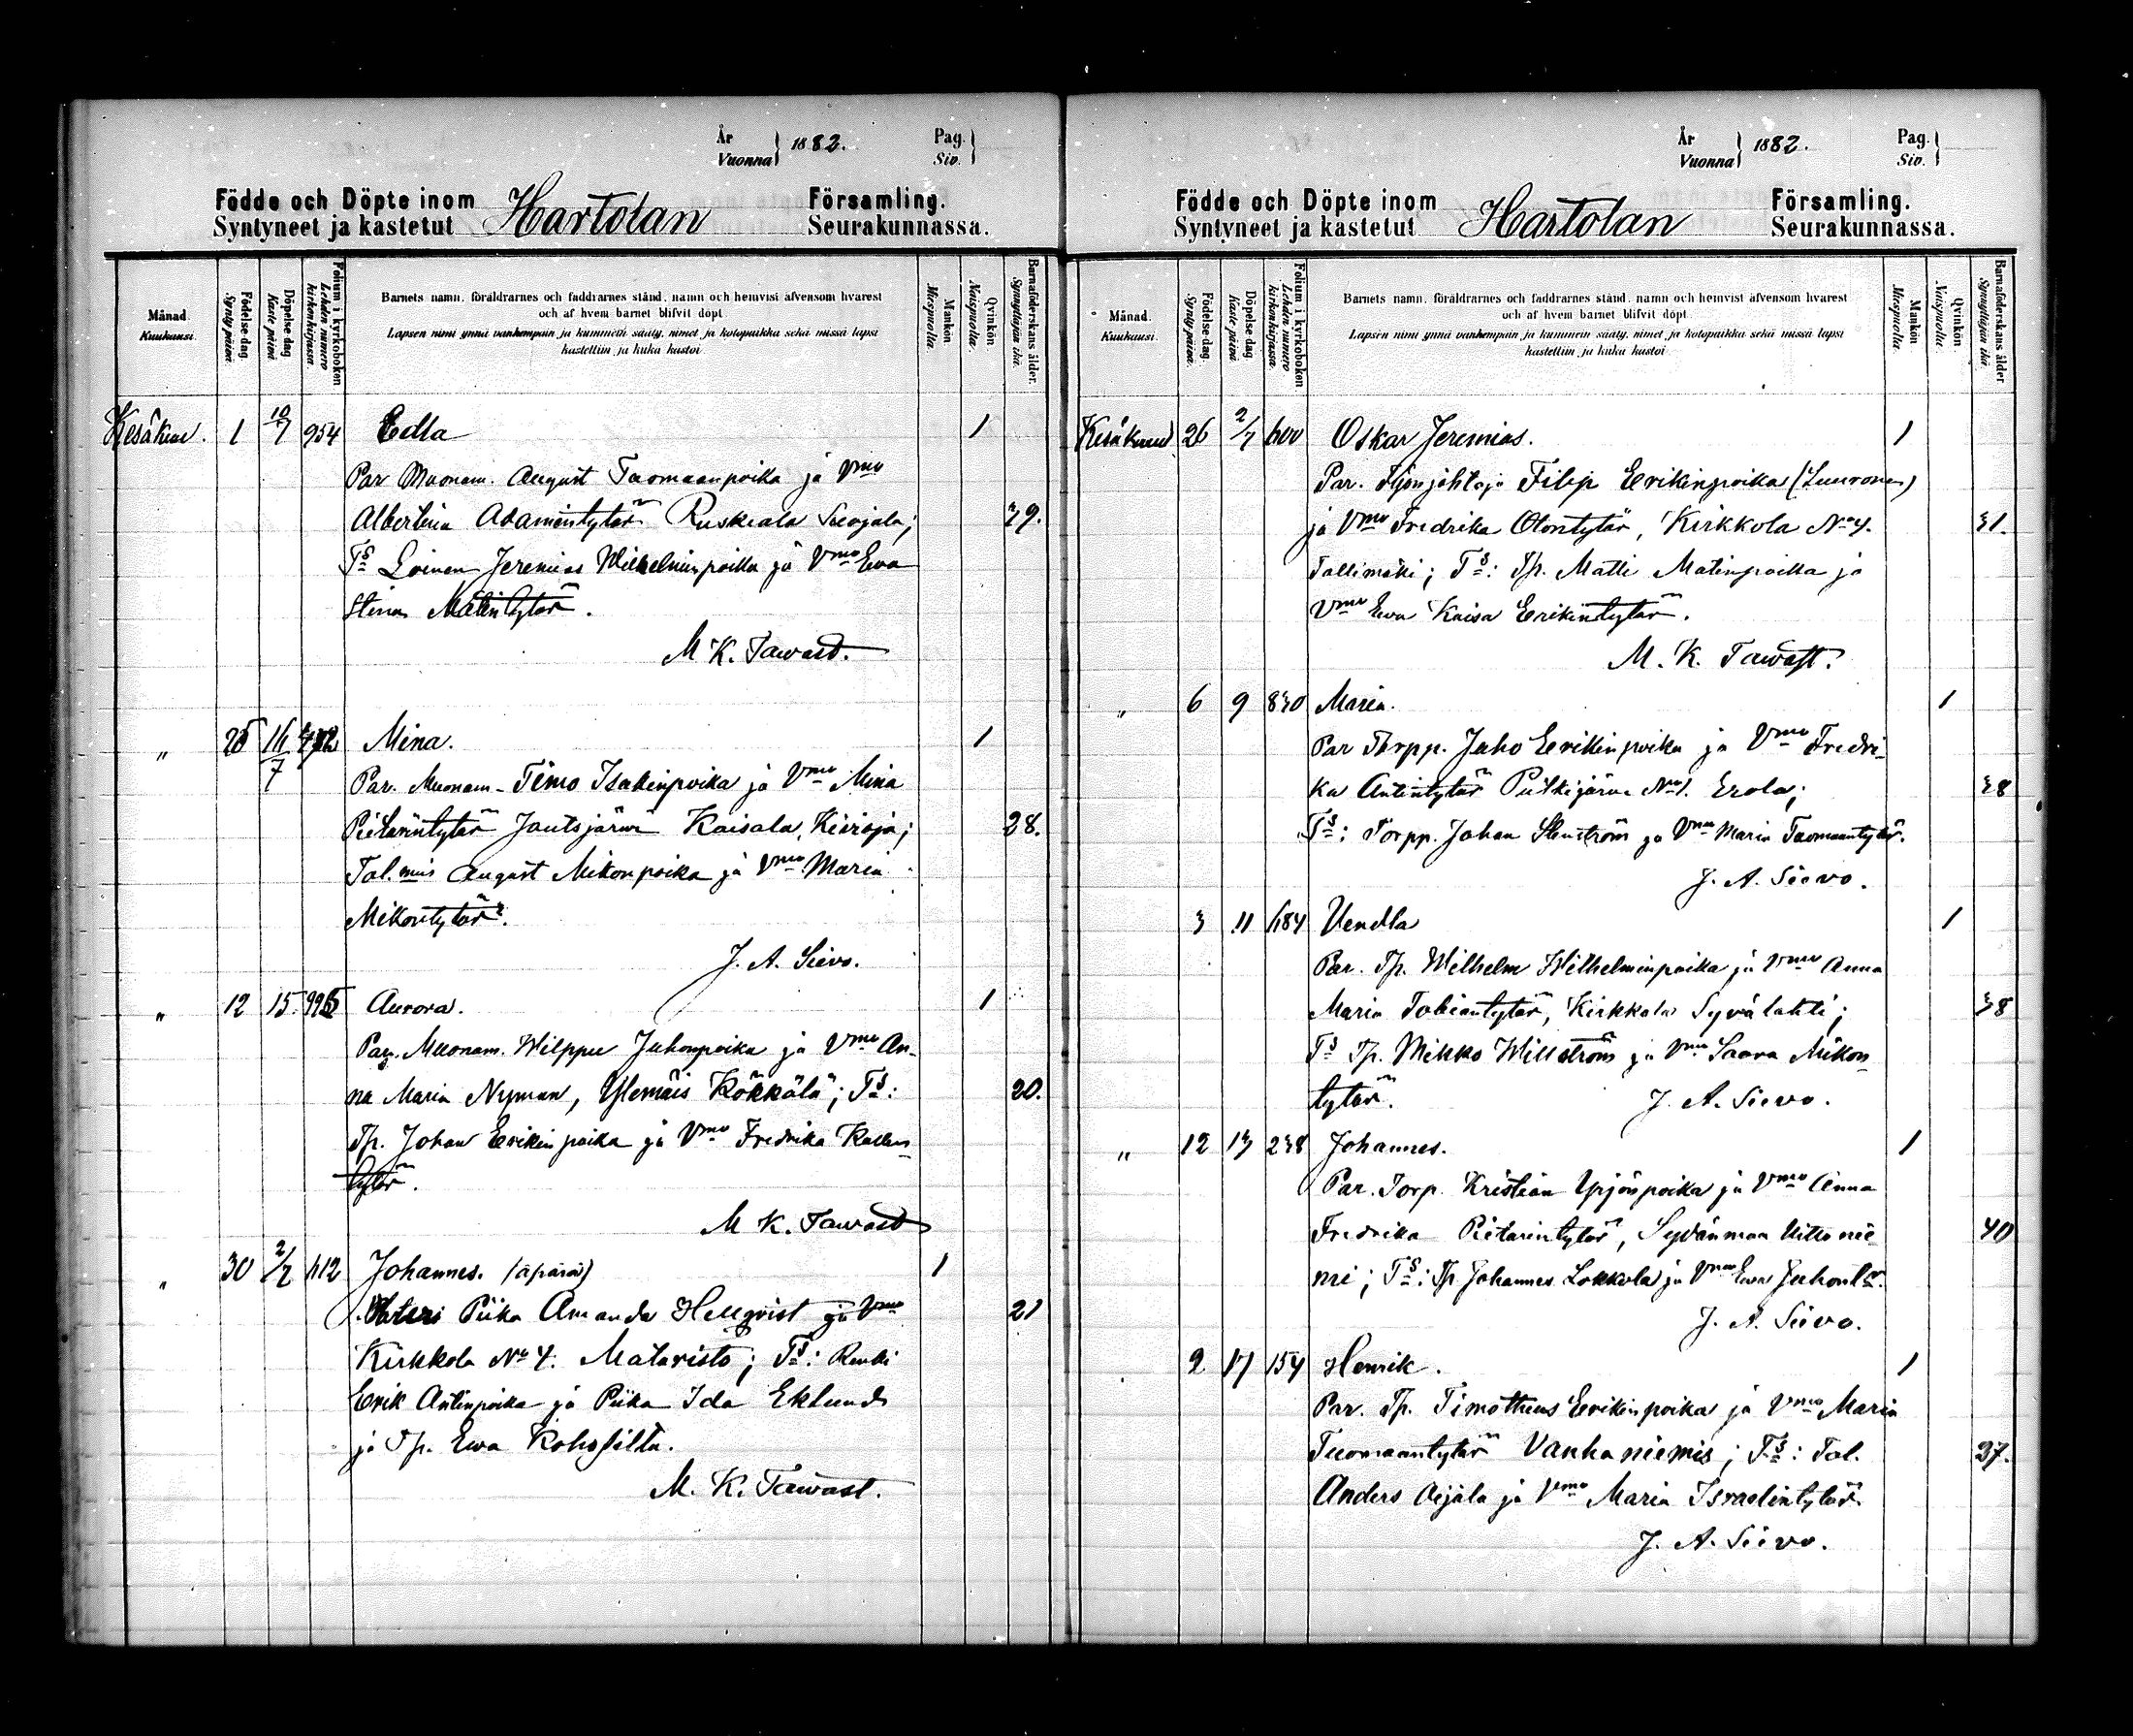 År
Vuonna } 1882.
Pag.
Siv. }
Födde och Döpte inom Hartolan Församling.
Syntyneet ja kastetut Seurakunnassa.
Månad. Kuukausi.
Födelse dag Synty päivä.
Döpelse dag Kaste päivä
Folium i kyrkoboken Lehden numero kirkonkirjassa.
Barnets namn, föräldrarnes och faddrarnes stånd, namn och hemvist äfvensom hvarest
och af hvem barnet blifvit döpt
Lapsen nimi ynnä vanhempain ja kummein sääty, nimet ja kotopaikka sekä missä lapsi
kastettiin ja kuka kastoi
Mankön Miespuolia.
Qvinkön. Naispuolia.
Barnaföderskans ålder. Synnyttäjän ikä.
Kesäkuu. 1 10/7 954 Edla 1
Par Muonam. August Tuomaanpoika ja Vmo
Albertina Adamintytär Ruskeala Suojala; 29.
Ts Loinen Jeremias Wilhelminpoika ja Vmo Ewa
Stina Matintytär.
M K. Tawast.
" 25 16/7 Mina. 1
Par. Muonam. Timo Isakinpoika ja Vmo Mina
Pietarintytär Jautsjärwi Kaisala, Kivioja; 28.
Tal.mies August Mikonpoika ja Vmo Maria
Mikontytär.
J. A. Sievo.
" 12 15. 995 Aurora. 1
Par. Muonam. Wilppu Juhonpoika ja Vmo An-
na Maria Nyman, Ylemäis Kökkälä; Ts: 20.
Tp. Johan Eerikinpoika ja Vmo Fredrika Kallen-
tytär.
M K. Tawast
" 30 2/7 612 Johannes. (äpärä) 1
Piika Amanda Hellqvist ja Vmo 21
Kirkkola No 4. Mataristo; Ts: Renki
Erik Antinpoika ja Piika Ida Eklund
ja Tp. Ewa Kohosilta.
M. K. Tawast.
År
Vuonna } 1882.
Pag.
Siv. }
Födde och Döpte inom Hartolan Församling.
Syntyneet ja kastetut Seurakunnassa.
Månad. Kuukausi.
Födelse dag Synty päivä.
Döpelse dag Kaste päivä
Folium i kyrkoboken Lehden numero kirkonkirjassa.
Barnets namn, föräldrarnes och faddrarnes stånd, namn och hemvist äfvensom hvarest
och af hvem barnet blifvit döpt.
Lapsen nimi ynnä vanhempain ja kummein sääty, nimet ja kotopaikka sekä missä lapsi
kastettiin ja kuka kastoi
Mankön Miespuolia.
Qvinkön. Naispuolia.
Barnaföderskans ålder Synnyttäjän ikä.
Kesäkuu 26 2/7 600 Oskar Jeremias. 1
Par. Työnjohtaja Filip Eerikinpoika (Luuronen)
ja Vmo Fredrika Olontytär, Kirkkola No 4. 31.
Tallimäki; Ts: Tp. Matti Matinpoika ja
Vmo Ewa Kaisa Erikintytär.
M. K. Tawast.
" 6 9 830 Maria. 1
Par Torpp. Juho Eerikinpoika ja Vmo Fredri-
ka Antintytär Putkijärvi No 1. Erola; 38
Ts: Torpp. Johan Stenström ja Vmo Maria Tuomaantytär.
J. A. Sievo.
3 11 684 Vendla 1
Par. Tp. Wilhelm Wilhelminpoika ja Vmo Anna
Maria Tobiantytär, Kirkkola Syvälahti; 38
Ts Tp. Mikko Willström ja Vmo Saara Mikon-
tytär. J. A. Sievo.
" 12 13 238 Johannes. 1
Par. Torp. Kristian Yrjönpoika ja Vmo Anna
Fredrika Pietarintytär, Sydänmaa Uittonie- 40
mi; Ts: Tp. Johannes Lokkola ja Vmo Ewa Juhont:r.
J. A. Sievo.
2 17 154 Henrik. 1
Par. Tp. Timotheus Eerikinpoika ja Vmo Maria
Tuomaantytär Vanhaniemis; Ts: Tal. 37.
Anders Aijala ja Vmo Maria Israelintytär.
J. A. Sievo.